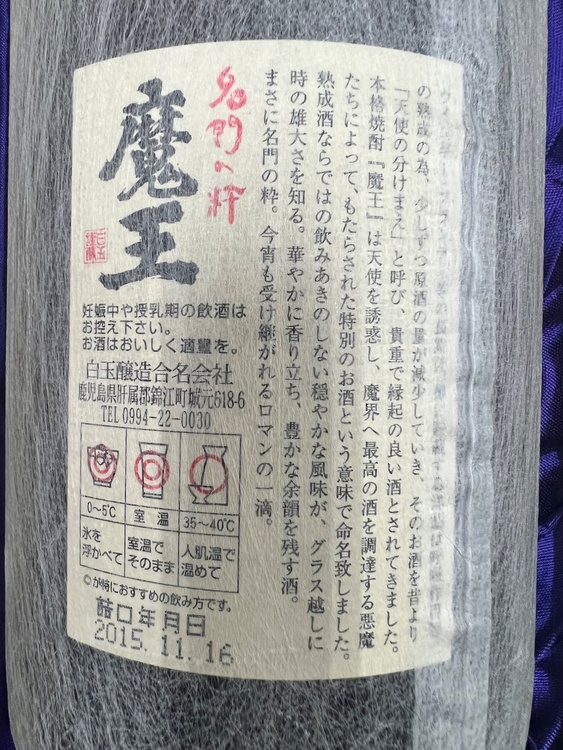 の熟成の為、少しずつ原酒の量が減少していき そのお酒を昔より
「天使の分けまえ」と呼び、貴重で縁起の良い酒とされてきました。
本格焼酎『魔王』は天使を誘惑し、魔界へ最高の酒を調達する悪魔
たちによって、もたらされた特別のお酒という意味で命名致しました。
熟成酒ならではの飲みあきのしない穏やかな風味が、グラス越しに
時の雄大さを知る。華やかに香り立ち、豊かな余韻を残す酒。
まさに名門の粋。今宵も受け継がれるロマンの一滴。
名門の粋
魔王
妊娠中や授乳期の飲酒は
お控え下さい。
お酒はおいしく適量を。
白玉醸造合名会社
鹿児島県肝属郡錦江町城元618-6
TEL0994-22-0030
0〜5℃
室温
35〜40℃
氷を
浮かべて
室温で
そのまま
人肌温で
温めて
◎が特におすすめの飲み方です。
詰口年月日
2015.11.16